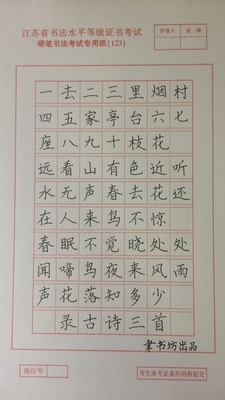 江苏省书法水平等级证书考试
硬笔书法考试专用纸{123}
评卷人
成绩
一去二三里烟村
四五家亭台六七
座八九十枝花
远看山有色近听
水无声春去花还
在人来鸟不惊
春眠不觉晓处处
闻啼鸟夜来风雨
声花落知多少
录古诗三首
聿书坊出品
座位号
考生准考证条形码粘贴处